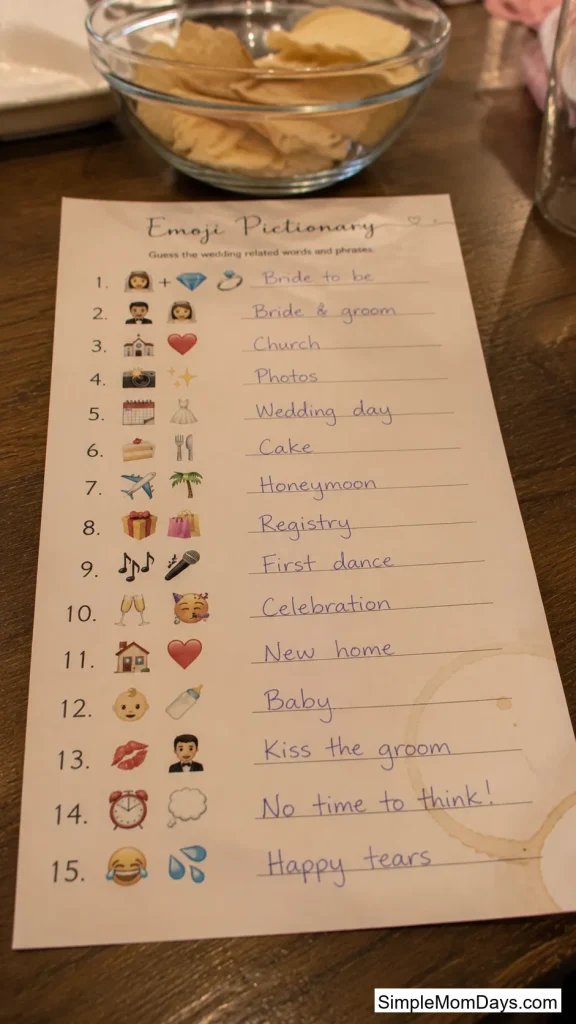 Emoji Pictionary
Guess the wedding related words and phrases.
1. 👰 + 💎 💍 Bride to be
2. 🤵 👰 Bride & groom
3. ⛪ ❤️ Church
4. 📸 ✨ Photos
5. 📅 👗 Wedding day
6. 🍰 🍴 Cake
7. ✈️ 🌴 Honeymoon
8. 🎁 🛍️ Registry
9. 🎶 🎤 First dance
10. 🥂 🥳 Celebration
11. 🏠 ❤️ New home
12. 👶 🍼 Baby
13. 💋 🤵 Kiss the groom
14. ⏰ 💭 No time to think!
15. 😂 💦 Happy tears
SimpleMomDays.com